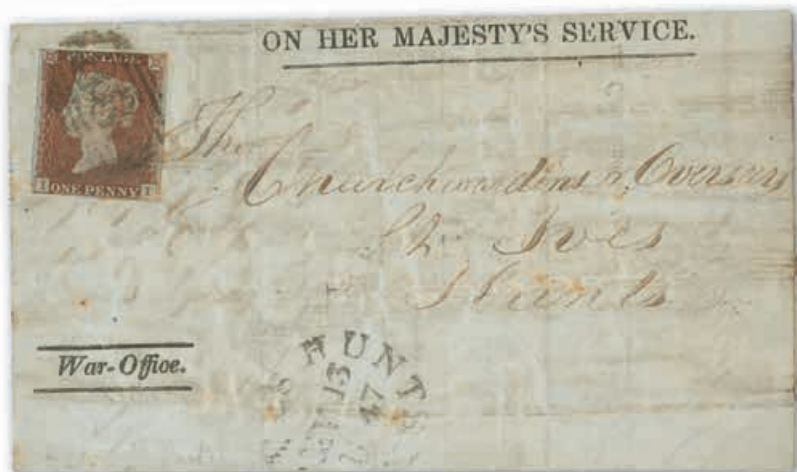 ON HER MAJESTY'S SERVICE.
POSTAGE
ONE PENNY
The
Churchwardens & Overseers
St. Ives
Hunts
War-Office.
HUNT
13
47